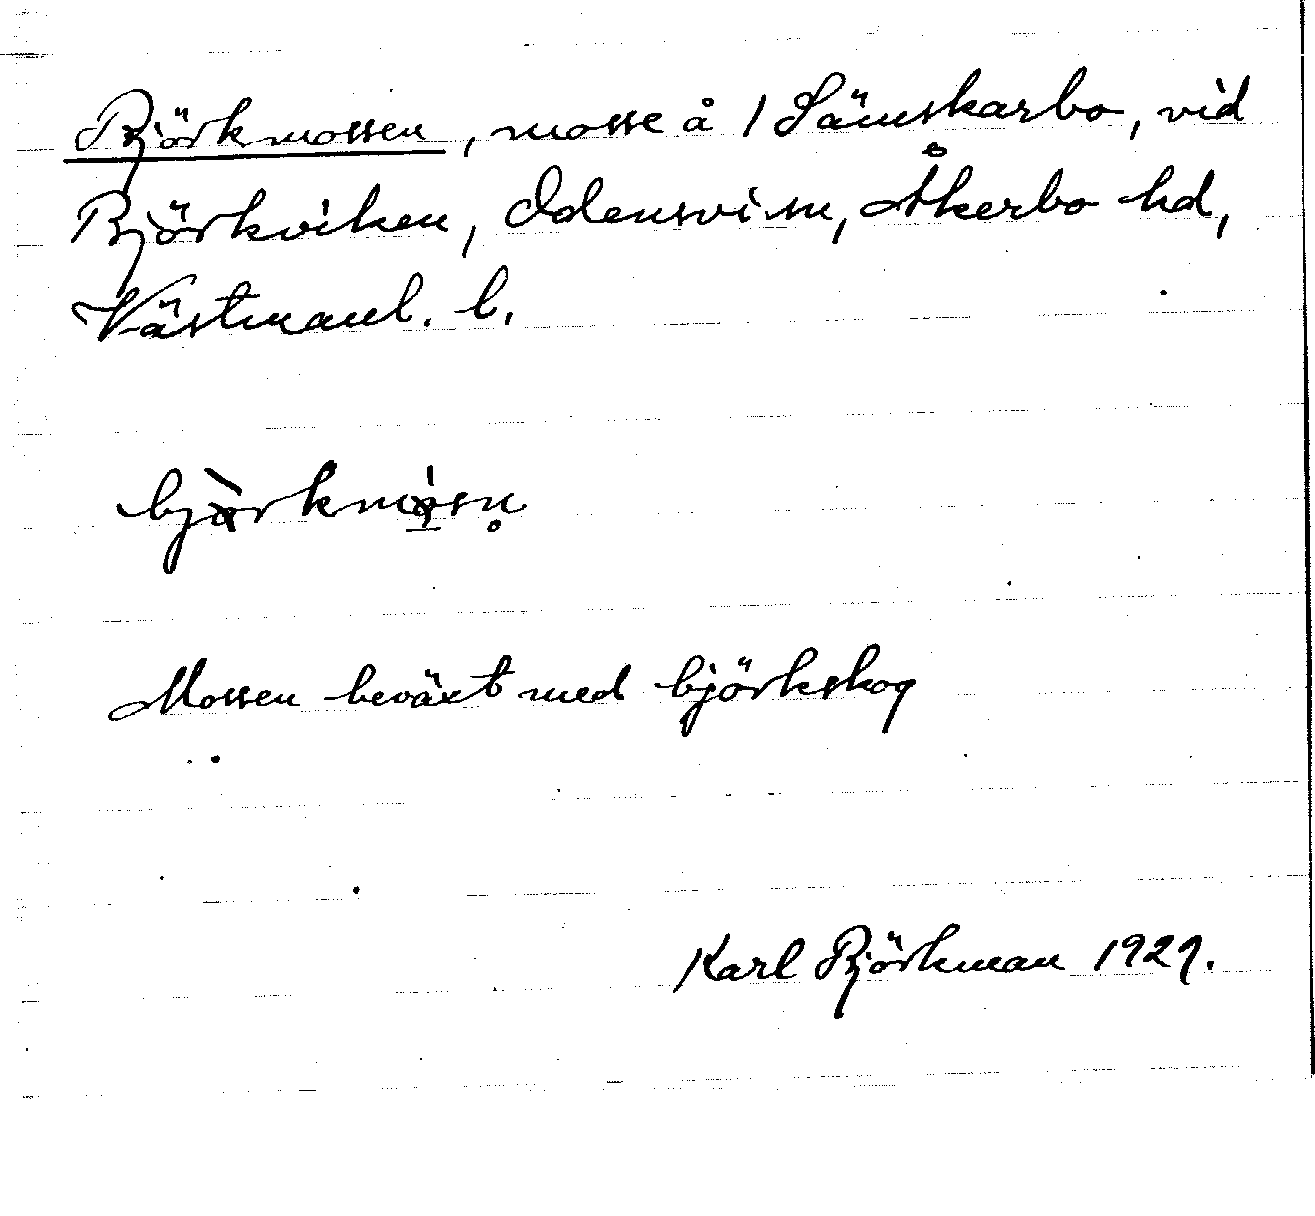 Björkmossen, mosse å 1 Sämskarbo, vid
Björkviken, Odensvi sn, Åkerbo hd,
Västmanl. l.
Mossen beväxt med björkskog
Karl Björkman 1929.